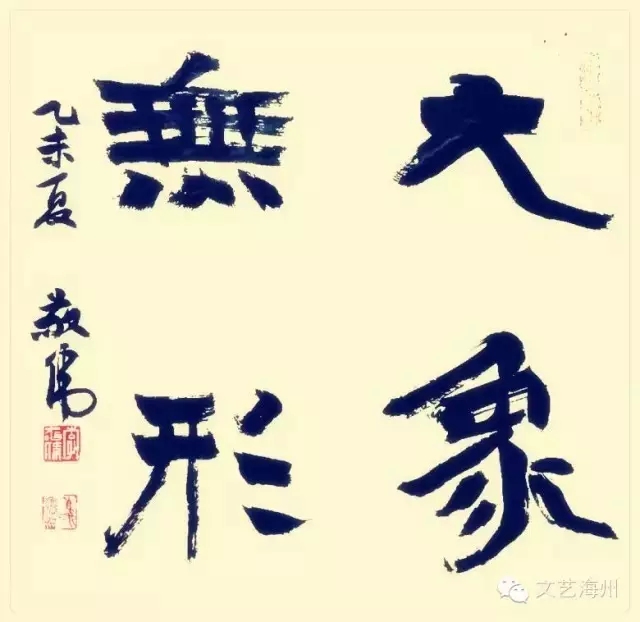 大象
無形
乙未夏
敬儒
文艺海州